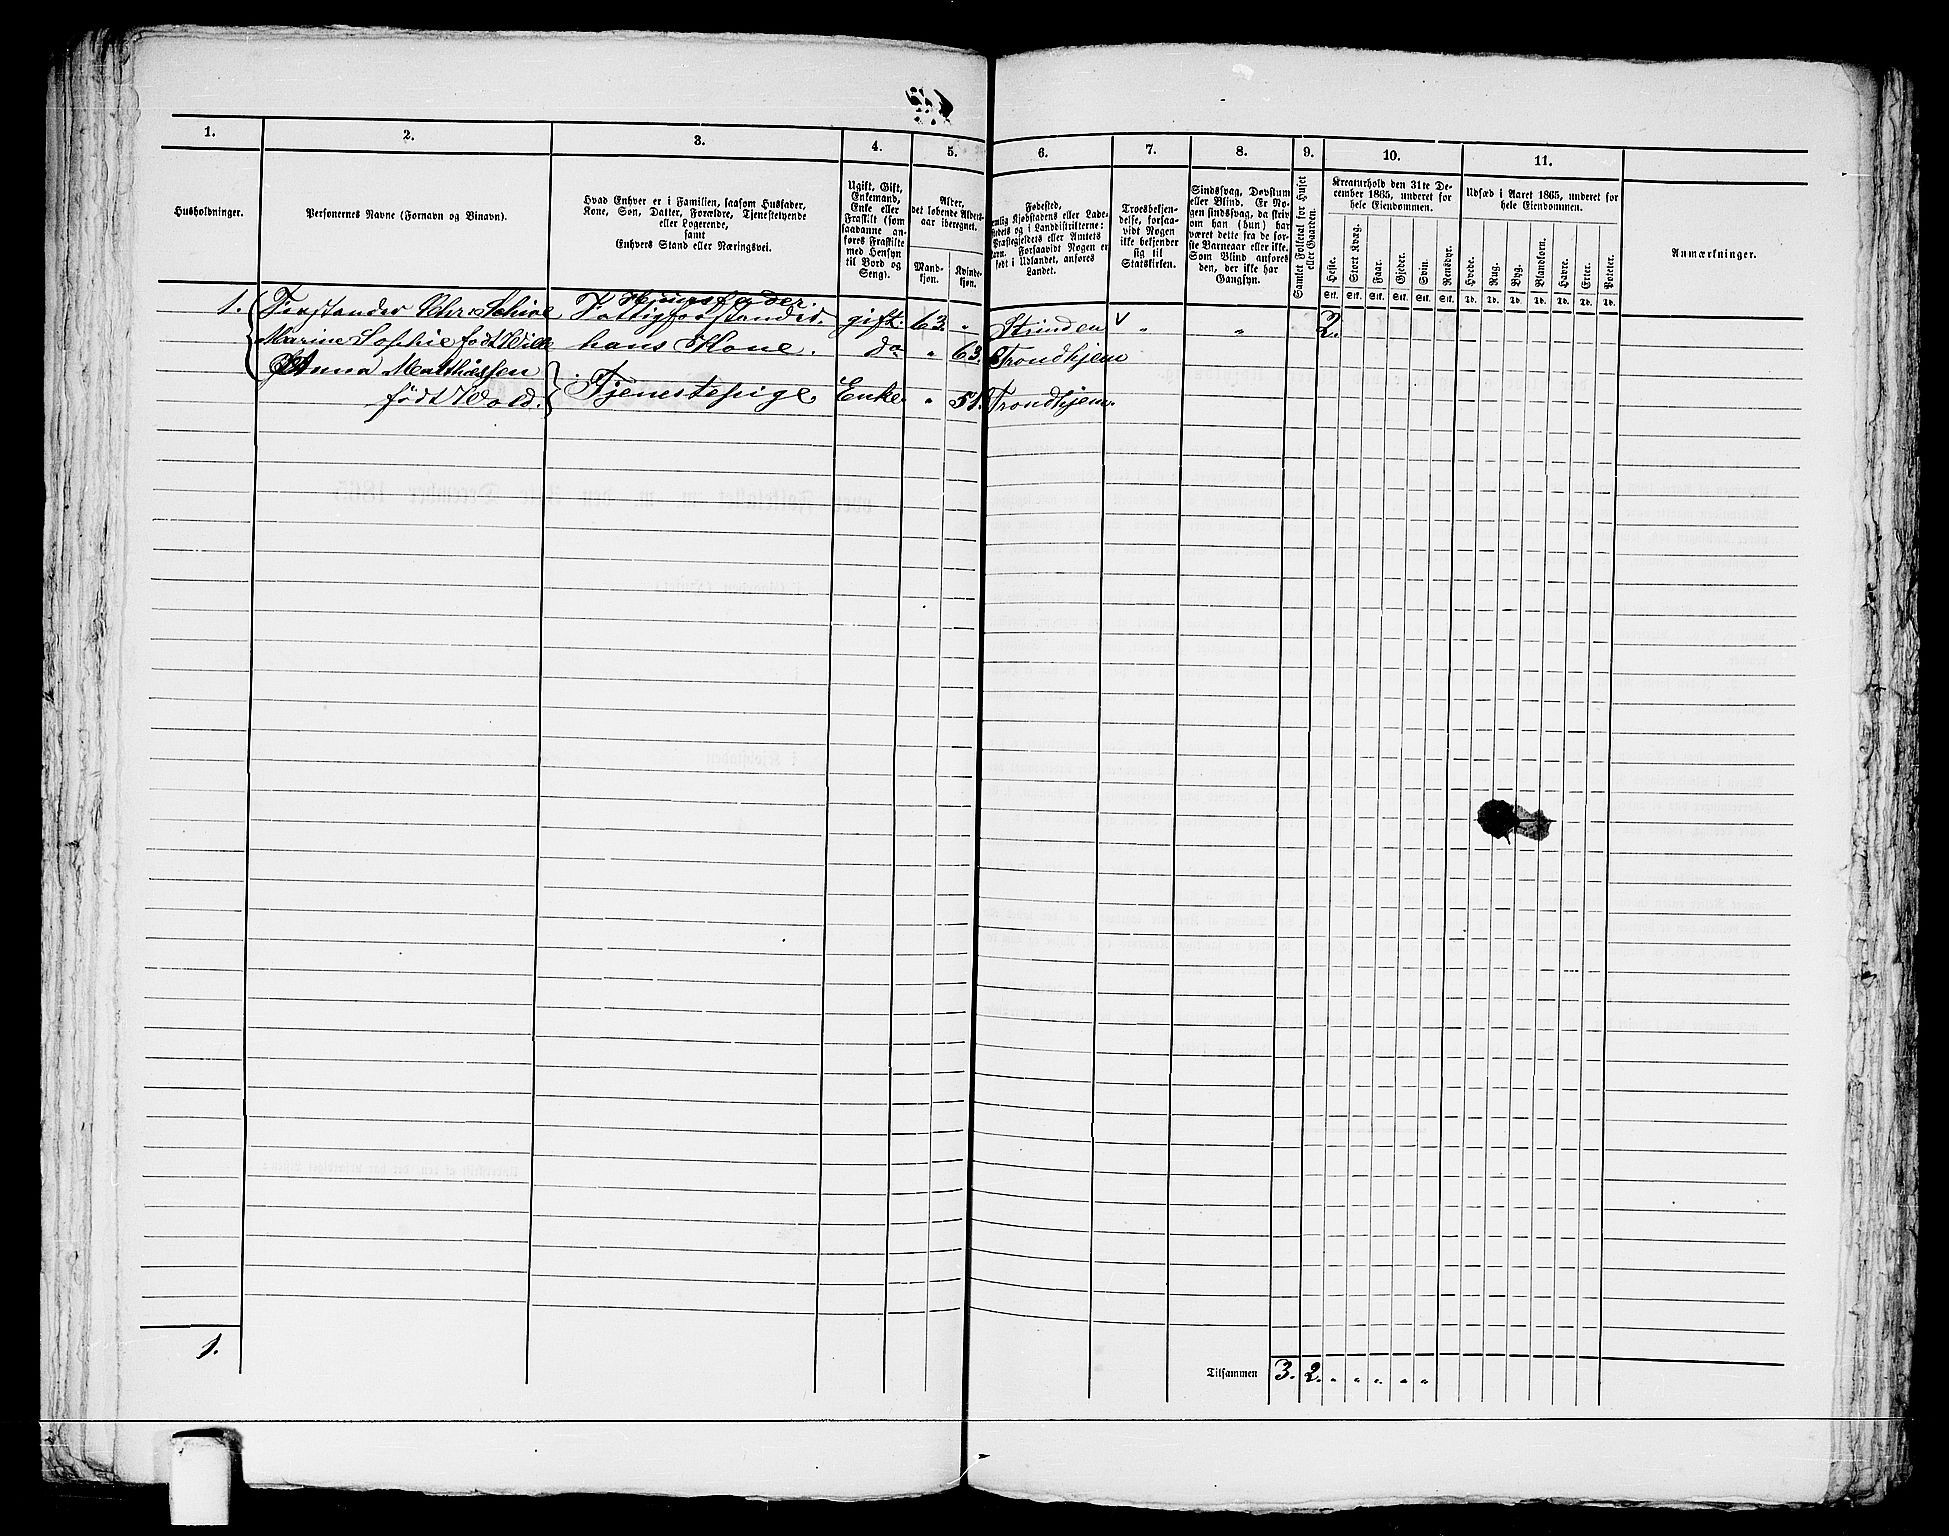 1. 2. 3. 4. 5. 6. 7. 8. 9. 10. 11.
Husholdninger.
Personernes Navne (Fornavn og Binavn).
Hvad Enhver er i Familien, saasom Husfader,
Kone, Søn, Datter, Forældre, Tjenestetyende
eller Logerende,
samt
Enhvers Stand eller Næringsvei.
Ugift, Gift,
Enkemand,
Enke eller
Fraskilt (som
saadanne an-
føres Fraskilte
med Hensyn
til Bord og
Seng).
Alder,
det løbende Alders-
aar iberegnet.
Mand-
kjøn.
Kvinde-
kjøn.
Fødested,
Kjøbstadens eller Lade-
stedets og i Landdistrikterne:
Præstegjeldets eller Amtets
Navn. Forsaavidt Nogen er
født i Udlandet, anføres
Landet.
Troesbekjen-
delse, forsaa-
vidt Nogen
ikke bekjender
sig til
Statskirken.
Sindssvag, Døvstum
eller Blind. Er No-
gen sindssvag, da skriv
om han (hun) har
været dette fra de før-
ste Barneaar eller ikke.
Som Blind anføres
den, der ikke har
Gangsyn.
Samlet Folketal for Huset
eller Gaarden.
Kreaturhold den 31te De-
cember 1865, underet for
hele Eiendommen.
Heste. Stort Kvæg. Faar. Gjeder. Svin. Rensdyr.
Stk. Stk. Stk. Stk. Stk. Stk.
Udsæd i Aaret 1865, underet for
hele Eiendommen.
Hvede. Rug. Byg. Blandkorn. Havre. Erter. Poteter.
Td. Td. Td. Td. Td. Td. Td.
Anmærkninger.
Huusfader.
1. Forstander Chr. Schive Fattigforstander. gift. 63. " Strinden v " " 2.
Marine Sophie født Wille hans Kone. do " 63. Trondhjem
Anna Matthiessen
født Wold. Tjenestepige Enke. " 51. Trondhjem.
1. Tilsammen 3. 2. " " " " "